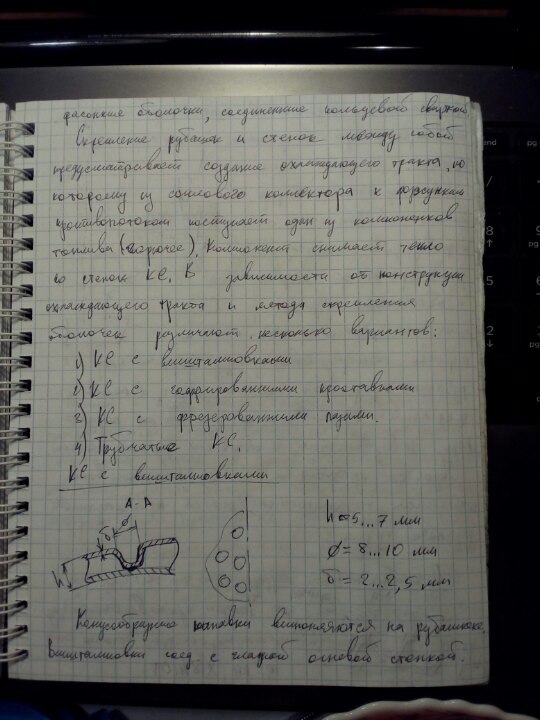 фасонные оболочки, соединённые кольцевой сваркой
Скрепление рубашек и стенок между собой
предусматривает создание охлаждающего тракта, по
которому из соплового коллектора к форсункам
противотоком поступает один из компонентов
топлива (горючее). Компонент снимает тепло
со стенок КС. В зависимости от конструкции
охлаждающего тракта и метода скрепления
оболочек различают несколько вариантов:
1) КС с выштамповками
2) КС с гофрированными проставками
3) КС с фрезерованными пазами.
4) Трубчатые КС.
КС с выштамповками
А-А
δ
h
h=5...7 мм
∅=8...10 мм
δ=2...2,5 мм
Конусообразные канавки выполняются на рубашке.
Выштамповки соед. с гладкой огневой стенкой.
end
pg
8
9
pg
5
6
2
pg